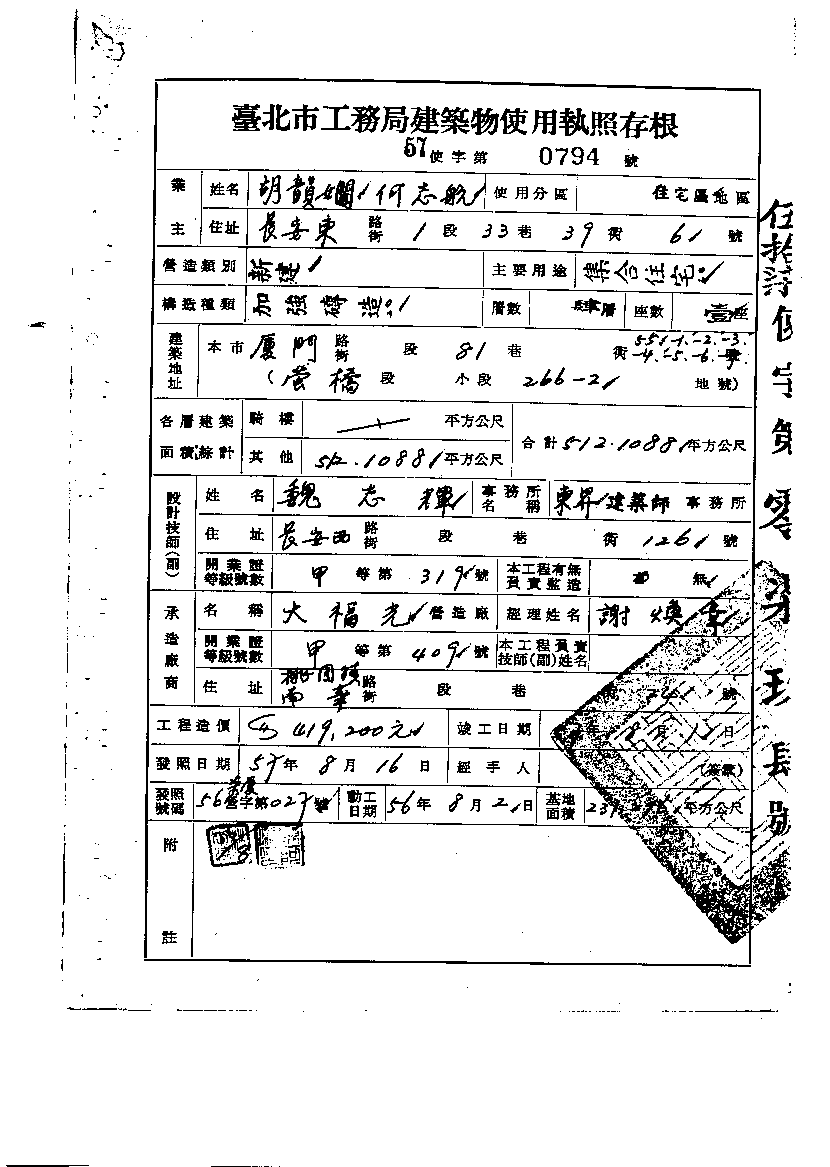 臺北市工務局建築物使用執照存根
57使字第 0794 號
業主 姓名 胡韻嫻 何志航 使用分區 住宅區地區
住址 長安東 路街 1 段 33 巷 39 衖 6 號
營造類別 新建 主要用途 集合住宅
構造種類 加強磚造 層數 肆層 座數 壹座
建築地址 本市 廈門 路街 段 81 巷 衖 55-1.-2.-3.-4.-5.-6. 號
(螢橋 段 小段 266-2 地號)
各層建築面積綜計 騎樓 平方公尺 合計 512.1088 平方公尺
其他 512.1088 平方公尺
設計技師(副) 姓名 魏志輝 事務所名稱 東昇建築師 事務所
住址 長安西 路街 段 巷 衖 126 號
開業證等級號數 甲 等第 319 號 本工程有無負責監造 無
承造廠商 名稱 大福光 營造廠 經理姓名 謝煥
開業證等級號數 甲 等第 409 號 本工程負責技師(副)姓名
住址 桃園鎮南華 路街 段 巷 號
工程造價 419,200元 竣工日期 年 8 月 日
發照日期 57年 8月 16日 經手人 (簽章)
發照號碼 56營字第027號 動工日期 56年 8月 2日 基地面積 平方公尺
附註
伍拾柒使字第零柒玖肆號